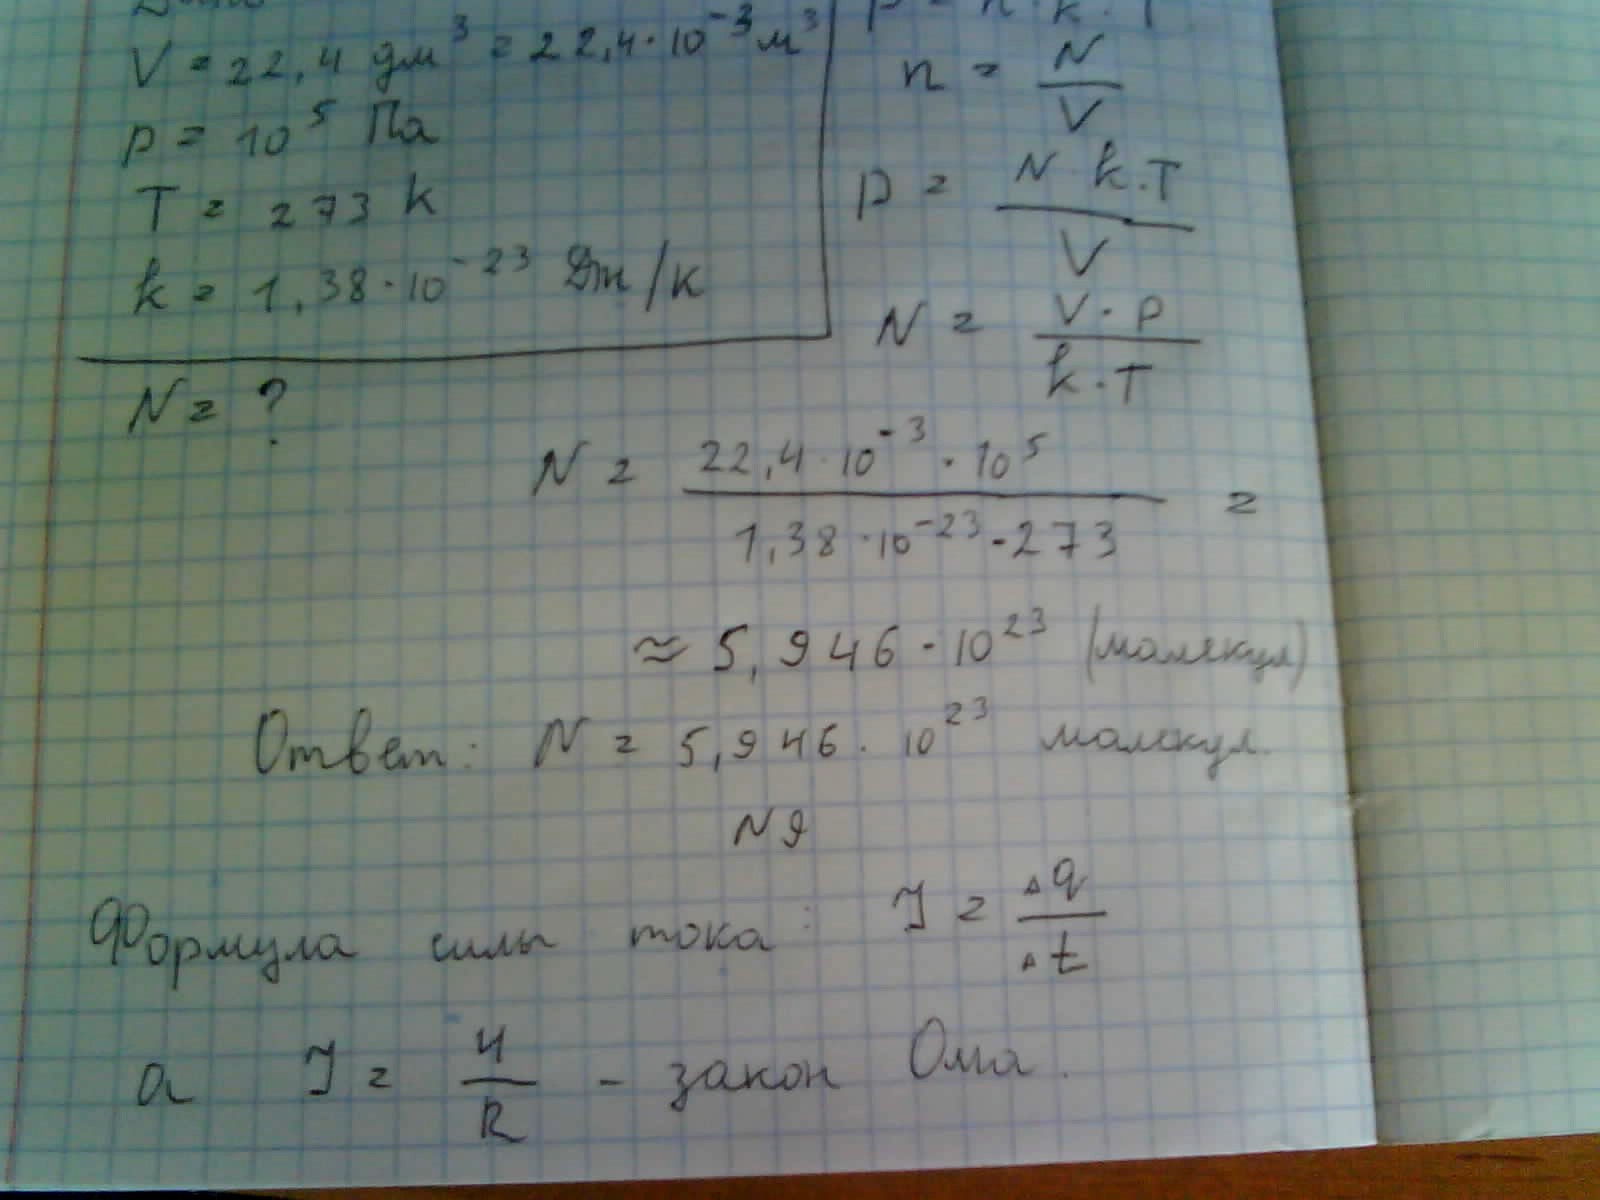 V = 22,4 дм³ = 22,4·10⁻³ м³
p = 10⁵ Па
T = 273 K
k = 1,38·10⁻²³ Дж/К
N = ?
p = n·k·T
n = N/V
p = N k·T / V
N = V·p / k·T
N = 22,4·10⁻³·10⁵ / 1,38·10⁻²³·273 =
≈ 5,946·10²³ (молекул)
Ответ: N = 5,946·10²³ молекул.
N9
Формула силы тока: I = ∆q/∆t
а I = U/R – закон Ома.